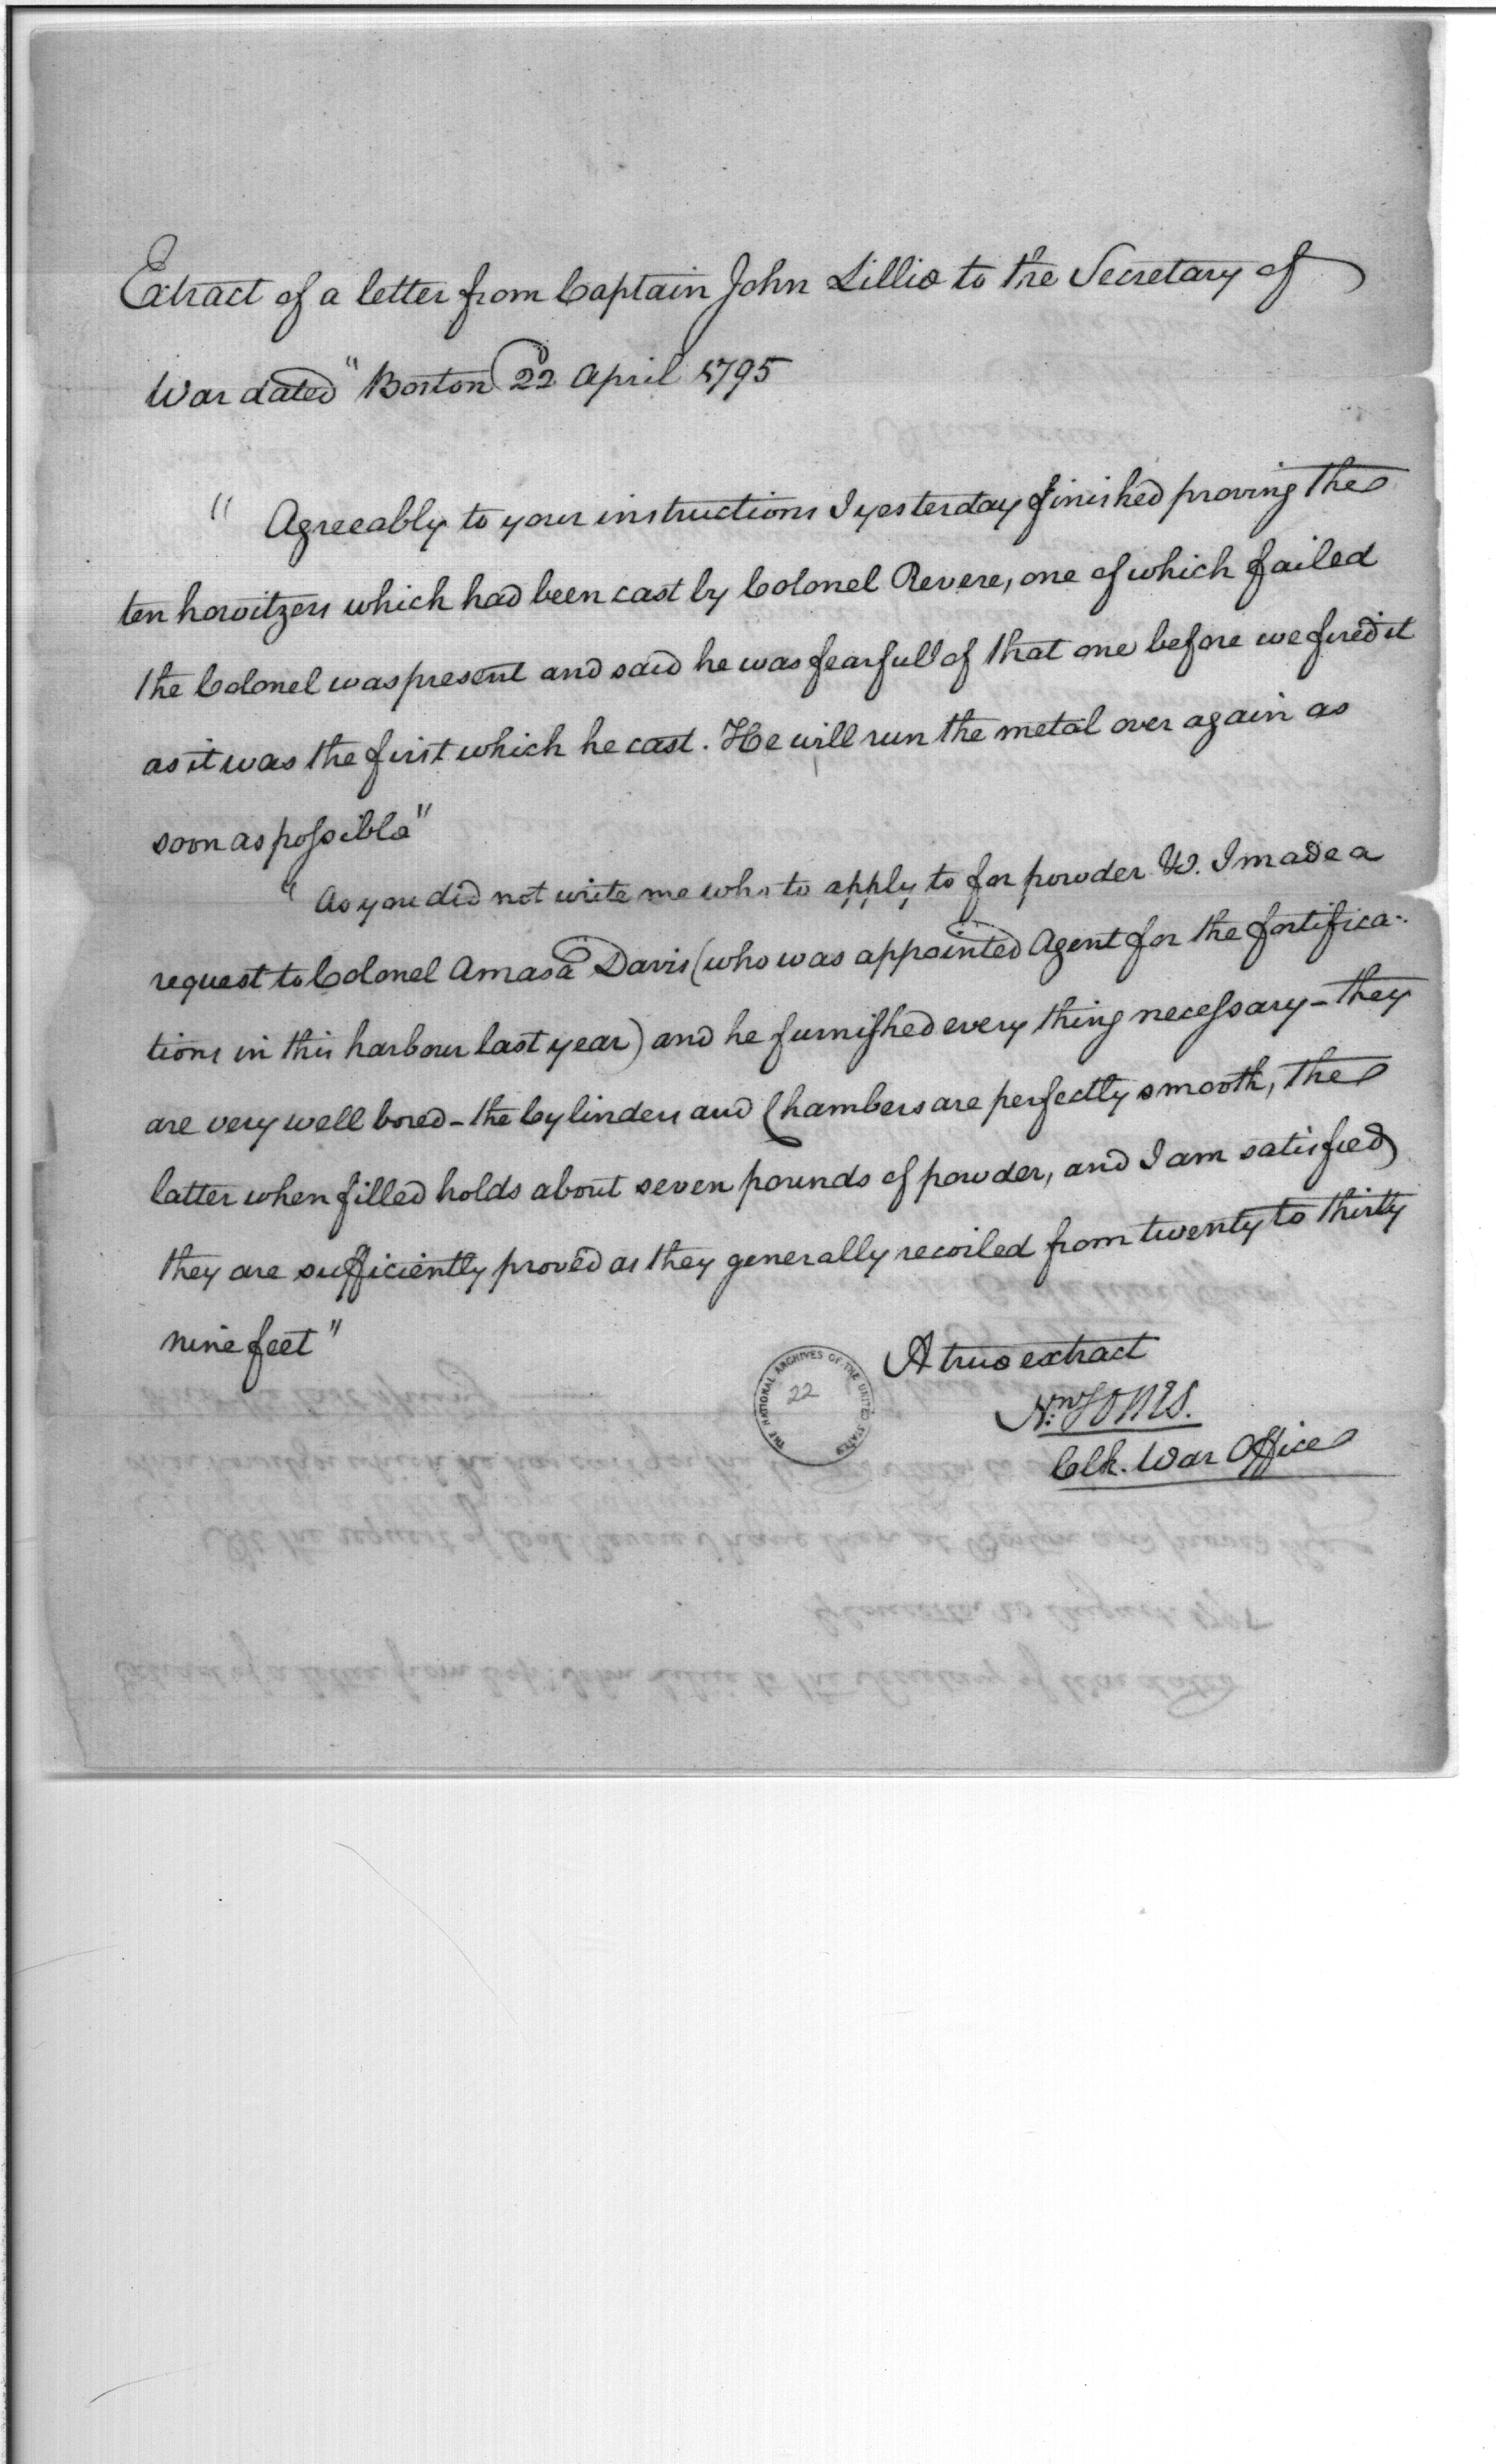 Extract of a letter from Captain John Lillie to the Secretary of
War dated "Boston 22 April 1795
" Agreeably to your instructions I yesterday finished proving the
ten howitzers which had been cast by Colonel Revere, one of which failed
the Colonel was present and said he was fearfull of that one before we fired it
as it was the first which he cast. He will run the metal over again as
soon as possible"
" As you did not write me who to apply to for powder &c. I made a
request to Colonel Amasa Davis (who was appointed Agent for the fortifica-
tions in this harbour last year) and he furnished every thing necessary – they
are very well bored – the Cylinders and Chambers are perfectly smooth, the
latter when filled holds about seven pounds of powder, and I am satisfied
they are sufficiently proved as they generally recoiled from twenty to thirty
nine feet"
A true extract
Jones.
Clk. War Office
THE NATIONAL ARCHIVES OF THE UNITED STATES
22